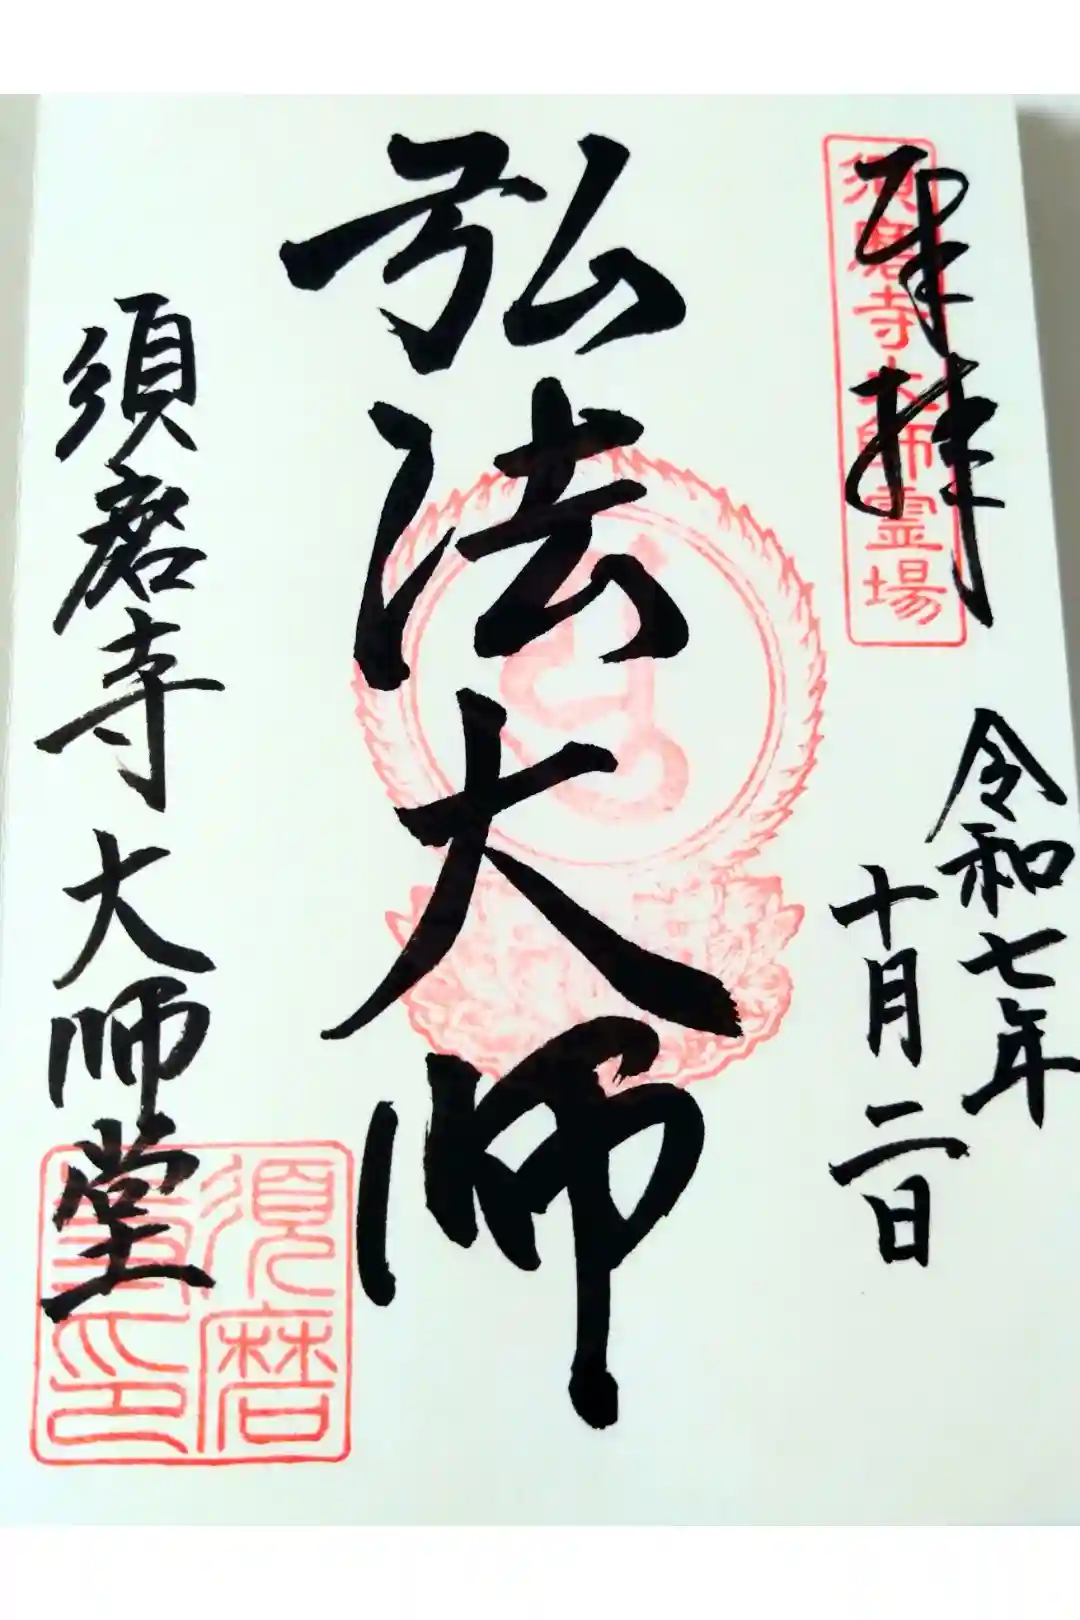 奉拝
須磨寺大師霊場
令和七年
十月二日
弘法大師
須磨寺大師堂
須磨寺印